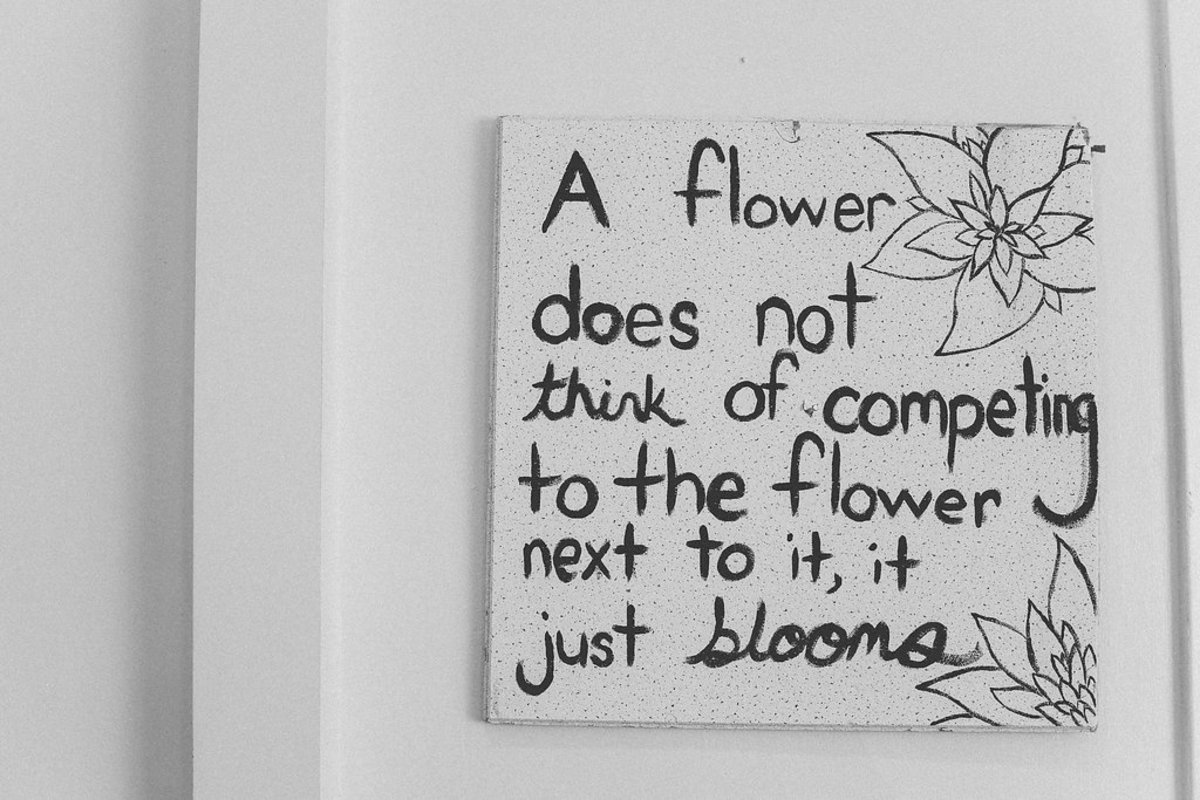 A flower
does not
think of competing
to the flower
next to it, it
just blooms